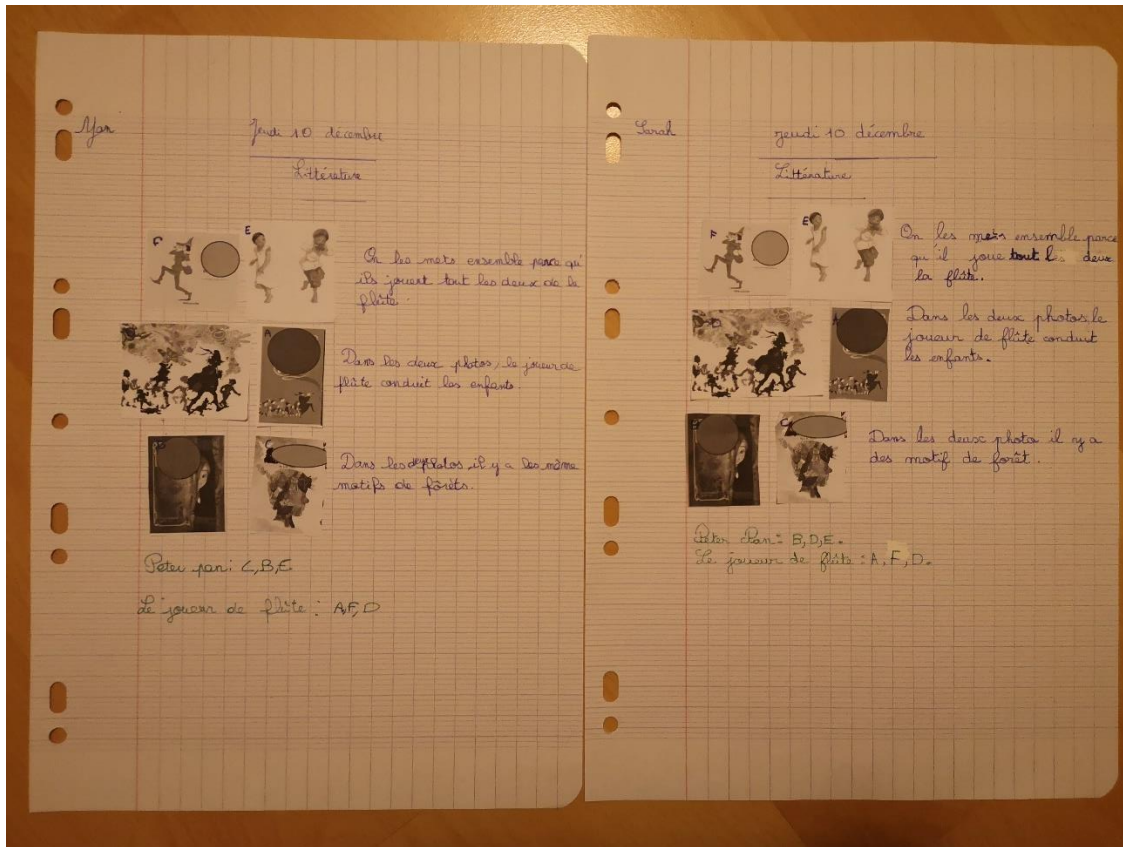 Yan
Jeudi 10 décembre
Littérature
F
E
On les mets ensemble parce qu'
ils jouent tout les deux de la
flûte.
A
Dans les deux photos, le joueur de
flûte conduit les enfants.
C
Dans les deux photos, il y a les même
motifs de forêts.
Peter pan : C, B, E.
Le joueur de flûte : A, F, D
Sarah
jeudi 10 décembre
Littérature
F
E
On les mets ensemble parce
qu'il joue tout les deux
la flûte.
D
A
Dans les deux photos, le
joueur de flûte conduit
les enfants.
B
C
Dans les deux photo il y a
des motif de forêt.
Peter Pan : B, D, E.
Le joueur de flûte : A, F, D.